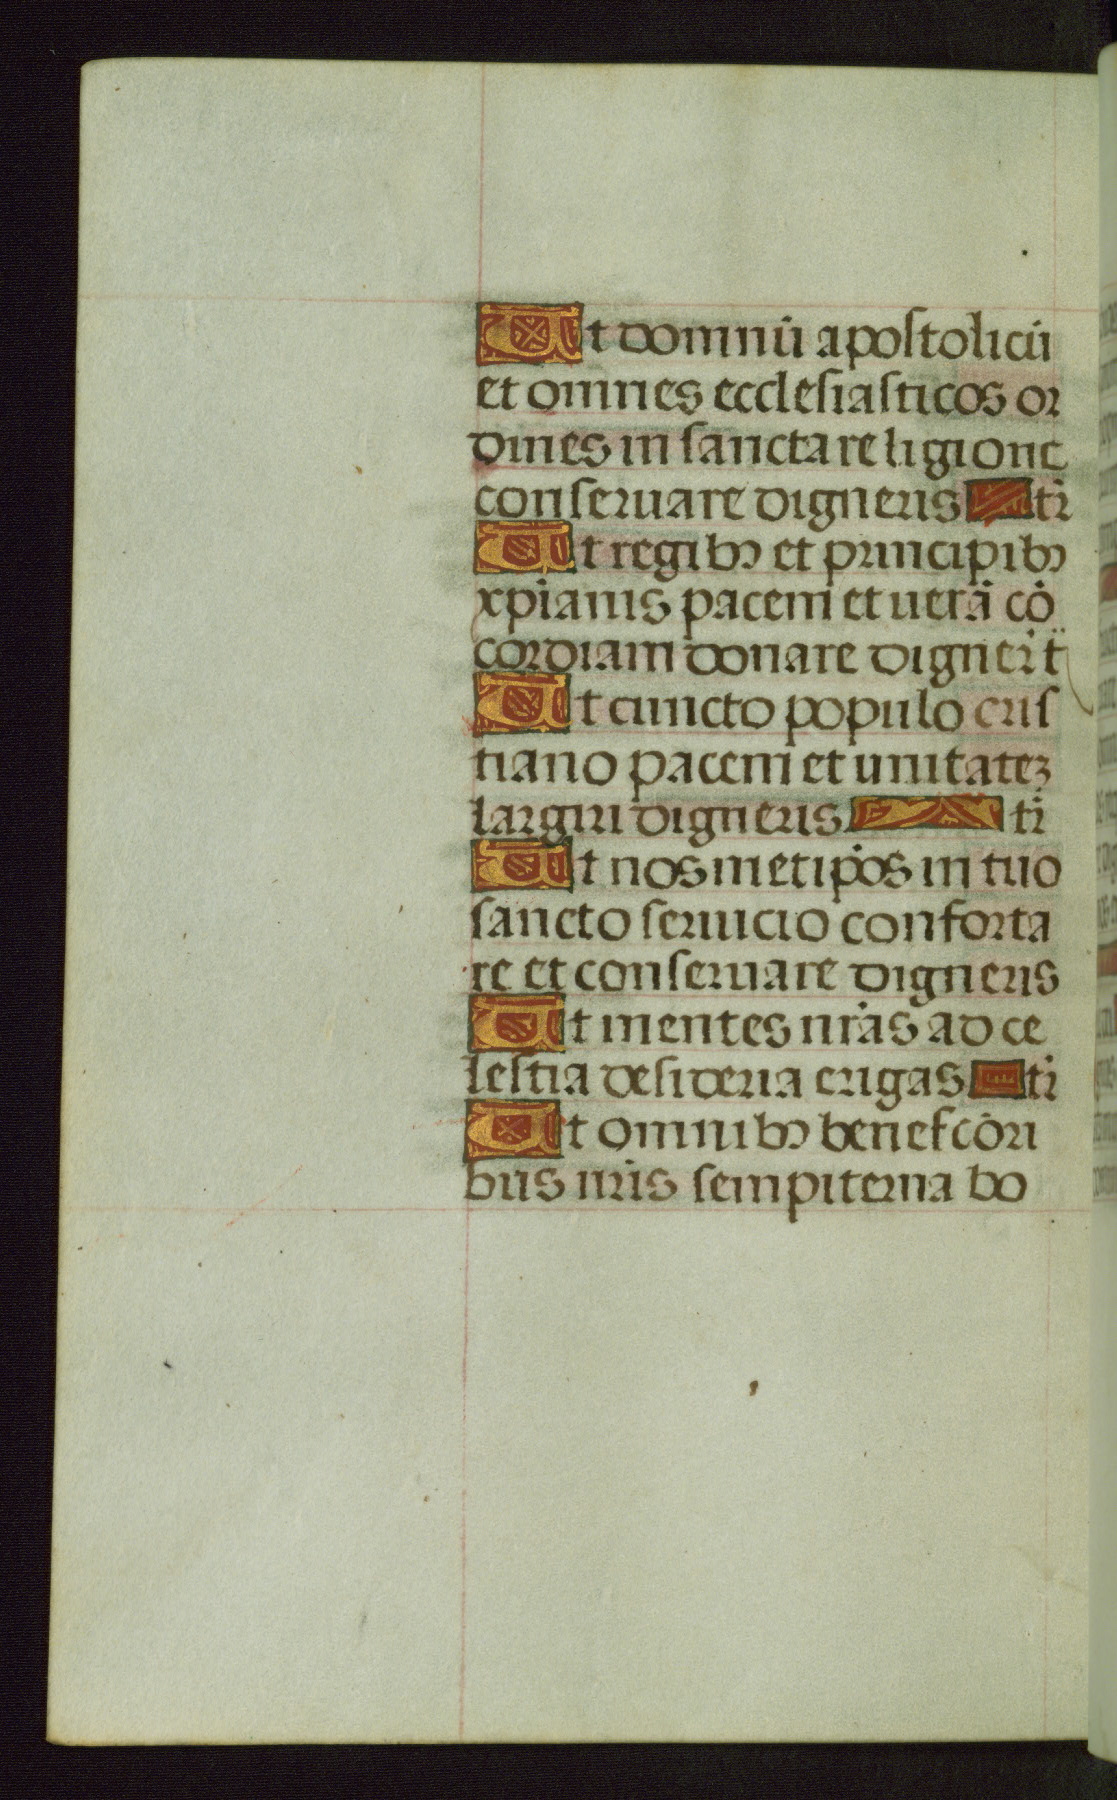 Ut domnū apostolicū
et omnes ecclesiasticos or
dines in sancta religione
conseruare digneris tr̄
Ut regibꝰ et principibꝰ
xp̄ianis pacem et uerā cō
cordiam donare digner̄ t̄
Ut cuncto populo cris
tiano pacem et unitatez
largiri digneris tr̄
Ut nosmetip̄os in tuo
sancto seruicio conforta
re et conseruare digneris
Ut mentes nr̄as ad ce
lestia desideria erigas tr̄
Ut omnibꝰ benefcōri
bus nr̄is sempiterna bo